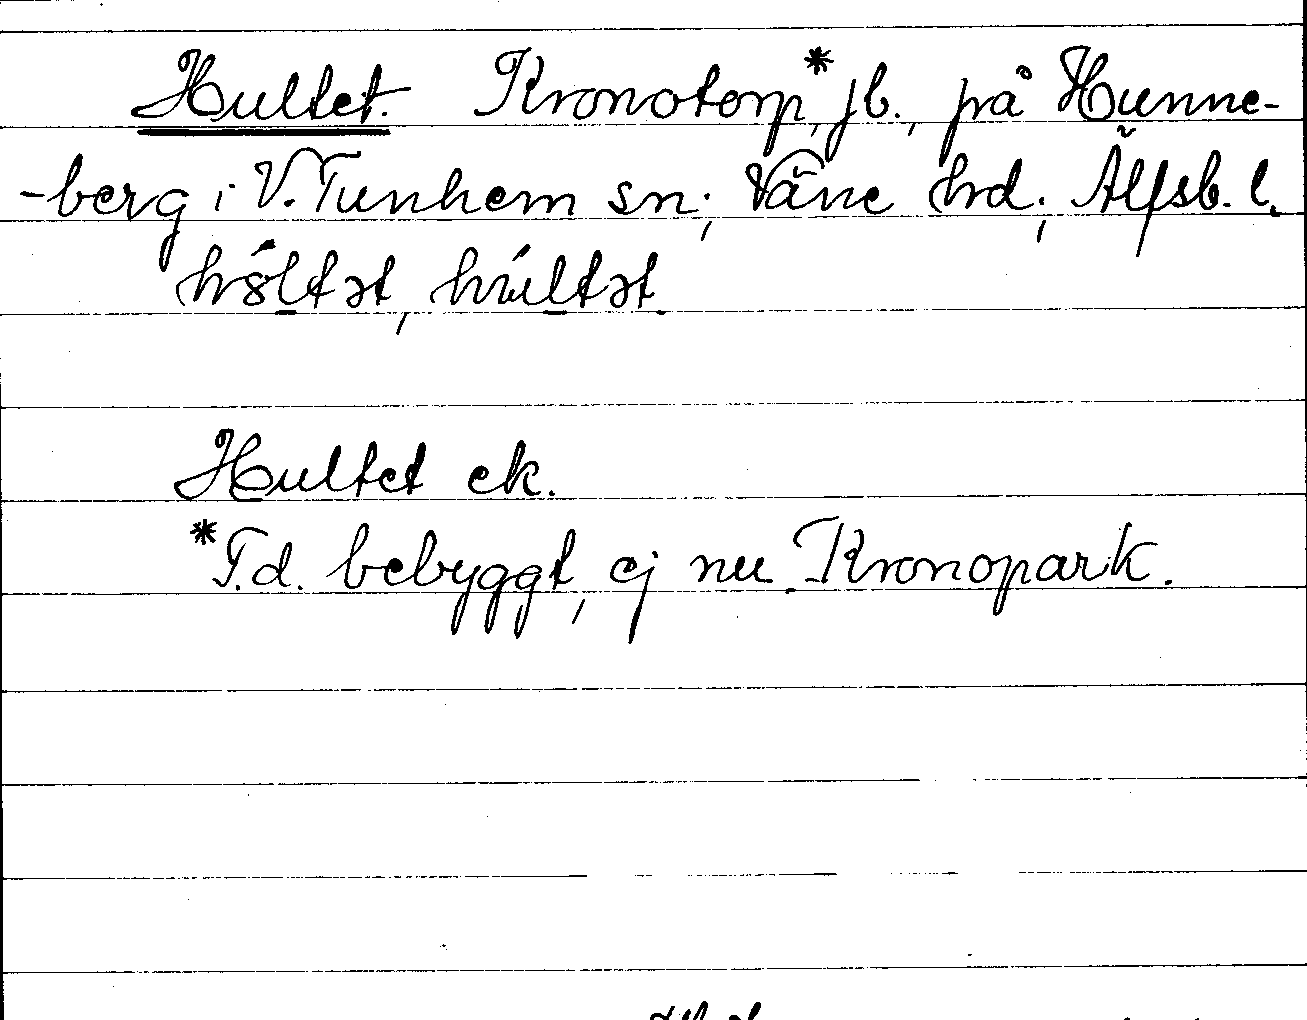 Hultet. Kronotorp*, jb., på Hunne-
-berg i V. Tunhem sn; Väne hrd; Älfsb. l.
hóltət, húltət.
Hultet ek.
*F.d. bebyggt, ej nu. Kronopark.